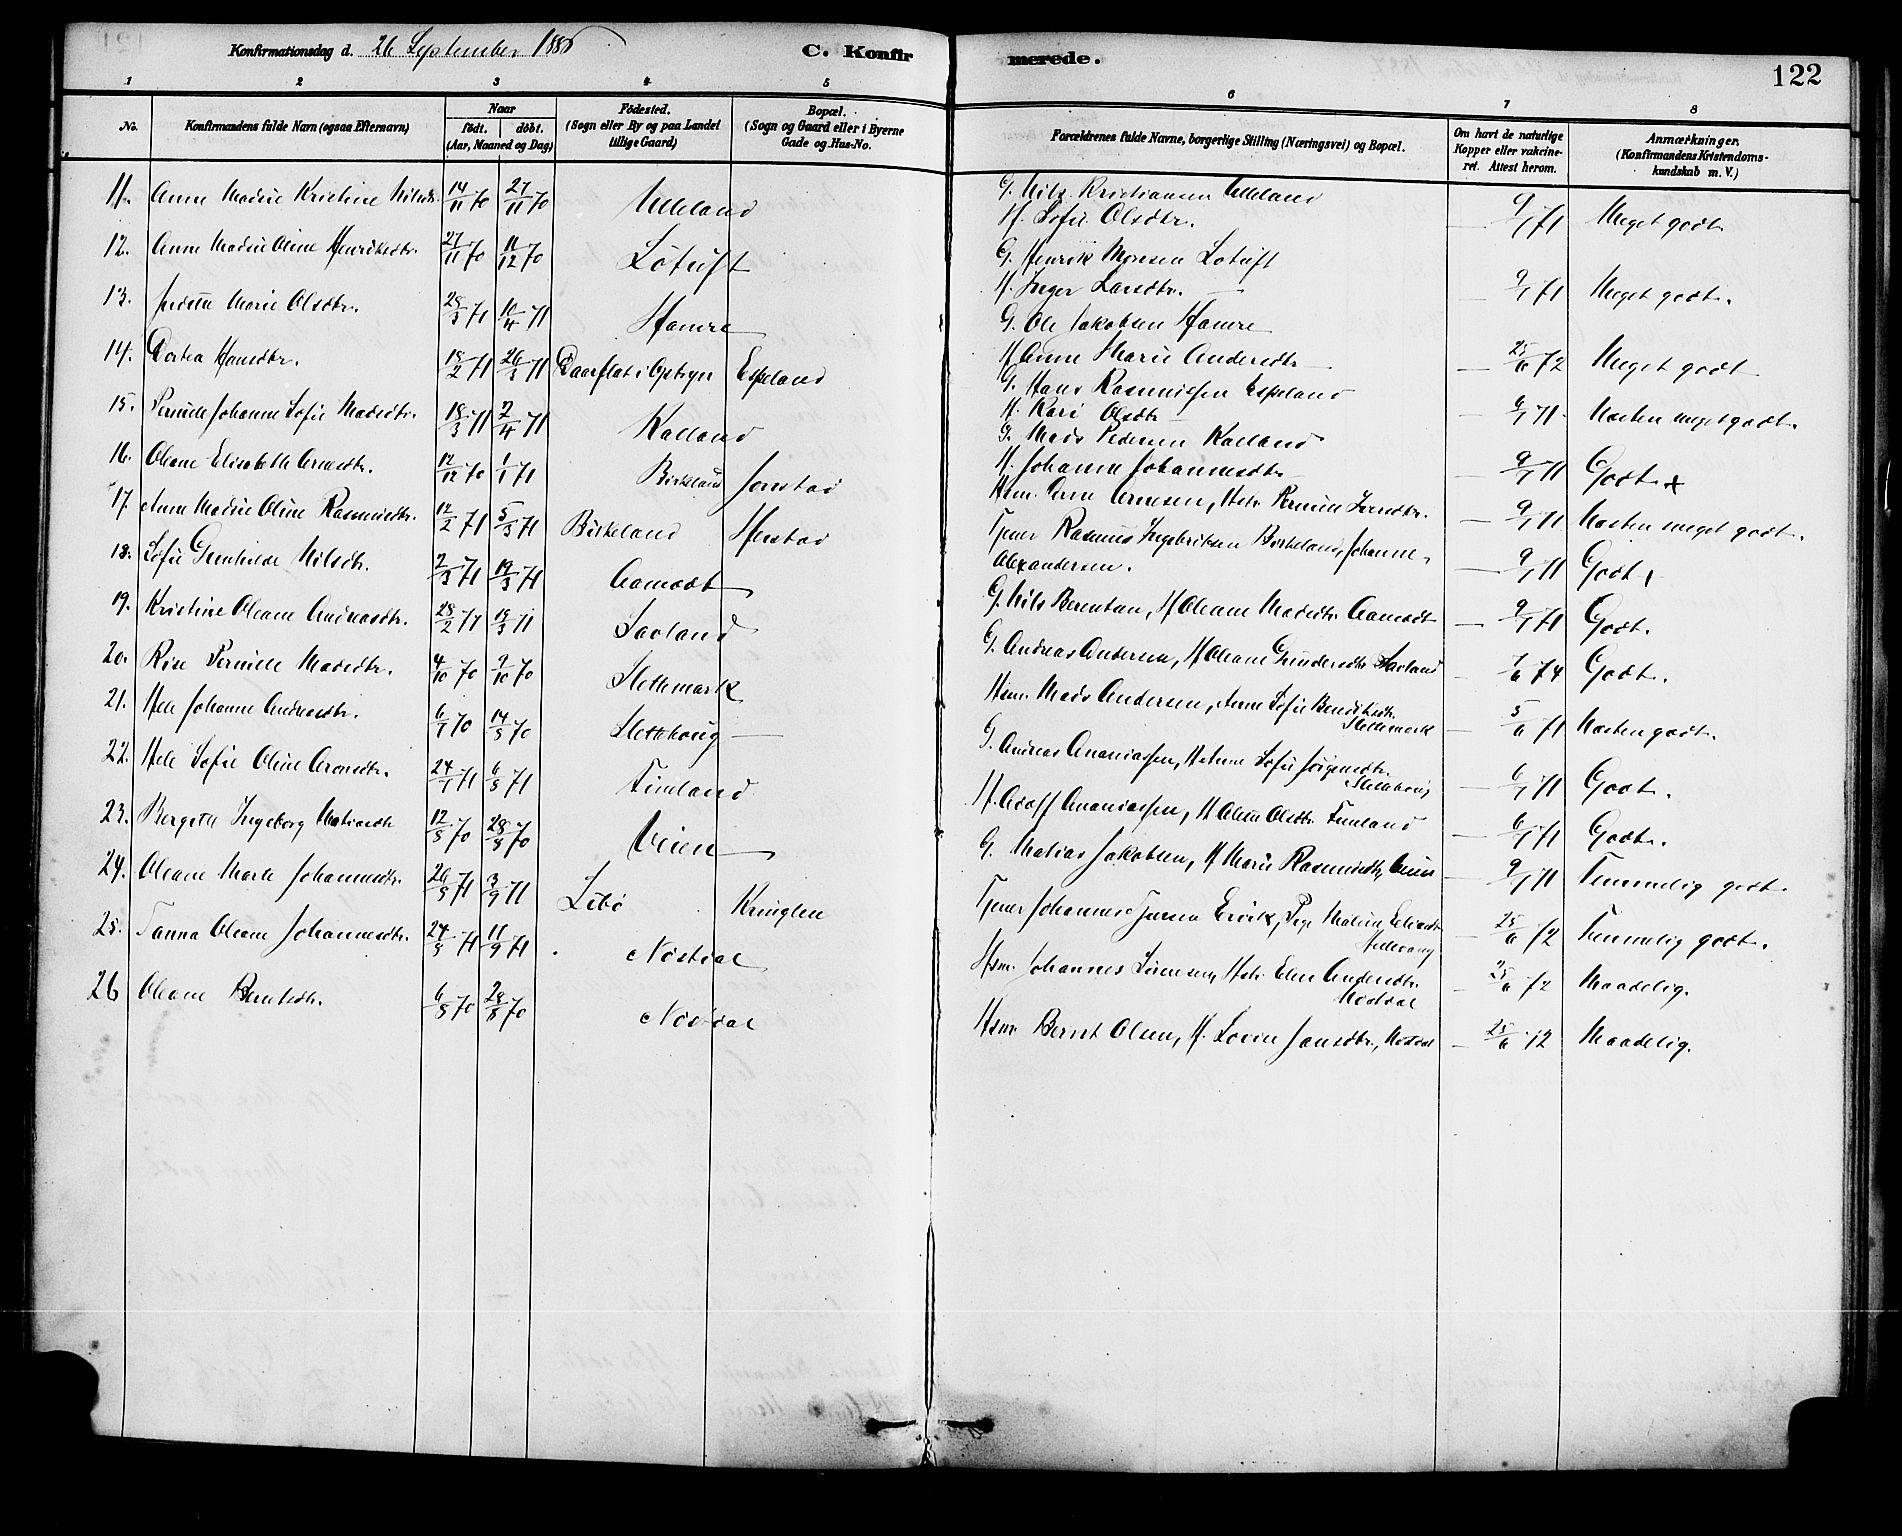 Konfirmationsdag d. 26 September 1886
C. Konfirmerede.
122
1 2 3 4 5 6 7 8
No. Konfirmandens fulde Navn (ogsaa Efternavn) Naar födt. döbt. (Aar, Maaned og Dag) Födested. (Sogn eller By og paa Landet tillige Gaard) Bopæl. (Sogn og Gaard eller i Byerne Gade og Hus-No. Forældrenes fulde Navne, borgerlige Stilling (Næringsvei) og Bopæl. Om havt de naturlige Kopper eller vakcineret. Attest herom. Anmærkninger. (Konfirmandens Kristendomskundskab m. V.)
11. Anne Madine Kristine Nilsdtr. 14/11 70 27/11 70 Ulleland — G. Nils Kristiansen Ulleland
H. Sofie Olsdtr. — 9/1 71 Meget godt
12. Anne Madine Oline Henriksdtr. 27/11 70 11/12 70 Lotuft G. Henrik Monsen Lotuft
H. Inger Larsdtr. — 9/1 71 Meget godt.
13. Marie Olsdtr. 28/3 71 10/4 71 Hamre — G. Ole Jakobsen Hamre
H. Anne Marie Andersdtr. — 25/6 72 Meget godt
14. Dortea Hansdtr. 18/2 71 26/3 71 i Espeland G. Hans Rasmussen Espeland
H. Kari Olsdtr — 6/1 71 Næsten meget godt.
15. Pernille Johanne Sofie Madsdtr. 18/3 71 2/4 71 Kalland G. Mads Pedersen Kalland
H. Johanne Johannesdtr — 9/1 71 Godt. x
16. Oleane Elisabeth Arnesdtr. 12/12 70 1/1 71 Birkeland Jonstad Hsm. Arnesen, Hstr. Pernille — 9/1 71 Næsten meget godt.
17. Anne Madine Oline Rasmusdtr. 12/2 71 5/3 71 Birkeland Henstad Tjener Rasmus Ingebriktsen Birkeland, Johanne
Alexandersen. — 9/1 71 Godt
18. Sofie Gunhilde Nilsdtr. 2/3 71 19/3 71 Aamodt — G. Nils Berentsen, H. Oleane Madsdtr. Aamodt — 9/1 71 Godt.
19. Kristine Oleane Andreasdtr. 28/2 71 19/3 71 Savland G. Andreas Andersen, H. Oleane Gundersdtr. Savland — 7/6 74 Godt.
20. Rise Pernille Madsdtr. 4/10 70 9/10 70 Slettemark Hsm. Mads Andersen, Anne Sofie Bendiksdtr.
Slettemark — 5/6 71 Næsten godt.
21. Hele Johanne Andreasdtr. 6/7 70 14/8 70 Slettehoug — G. Andreas Ananiassen, H. Anne Sofie Jörgensdtr.
Slettehoug — 6/1 71 Godt.
22. Hele Sofie Oline Aronsdtr. 24/1 71 6/3 71 Timland H. Ananiassen, H. Olsdtr. Timland — 6/1 71 Godt.
23. Bergitte Ingeborg Matiasdtr 12/8 70 28/8 70 Veien — G. Matias Jakobsen, H. Marie Rasmusdtr, — 9/1 71 Temmelig godt.
24. Oleane Marte Johannesdtr. 26/8 71 3/9 71 Lebö Kringlen Tjener Johannes Ervik, Pige Malene
— 25/6 72 Temmelig godt.
25. Tanna Oleane Johannesdtr. 24/8 71 11/9 71 Nöstdal Hsm. Johannes Sörensen, Hstr. Elen Andersdtr.
Nöstdal — 25/6 72 Maadelig.
26 Oleane Berntsdtr. 6/8 70 28/8 70 Nöstdal Hsm. Bernt Olsen, H. Lovise Jansdtr., Nöstdal — 25/6 72 Maadelig.